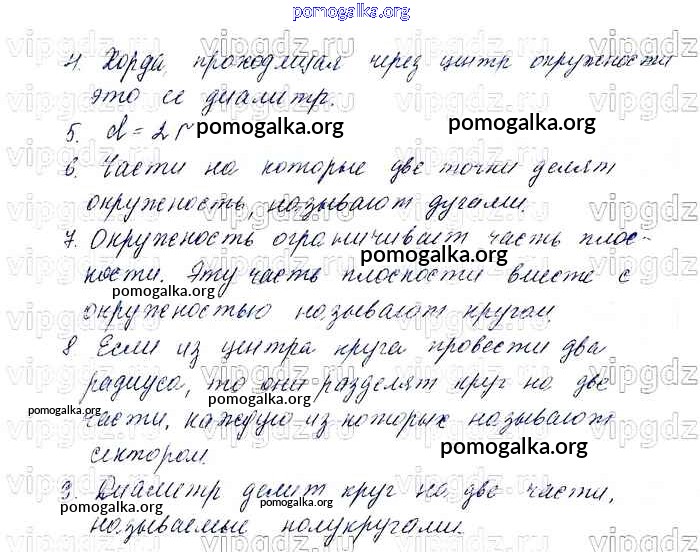 pomogalka.org
4. Хорда, проходящая через центр окружности
это ее диаметр.
5. d = 2r
pomogalka.org
6. Части на которые две точки делят
окружность, называют дугами.
7. Окружность ограничивает часть плос-
pomogalka.org
кости. Эту часть плоскости вместе с
pomogalka.org
окружностью называют кругом.
8 Если из центра круга провести два
радиуса, то они разделят круг на две
pomogalka.org
части, каждую из которых называют
pomogalka.org
сектором.
9. Диаметр делит круг на две части,
называемые полукругами.
pomogalka.org